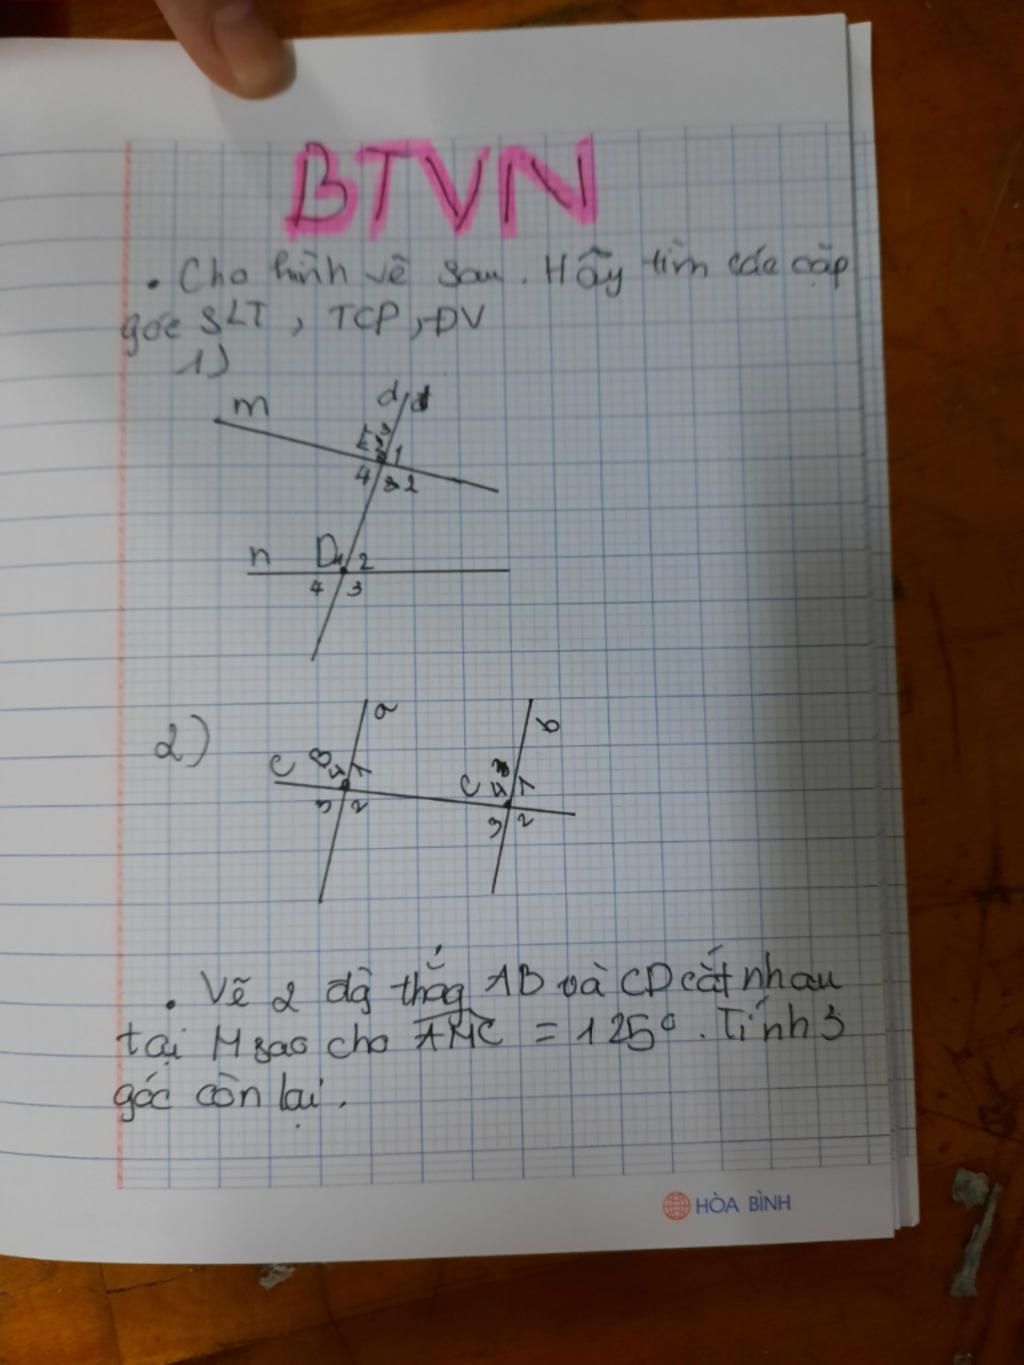 BTVN
• Cho hình vẽ sau. Hãy tìm các cặp
góc SLT, TCP, ĐV
1)
m
d
E
1
4
2
n
D
1
2
4
3
2)
a
b
C
B
4
1
3
2
C
4
1
3
2
• Vẽ 2 đg thẳng AB và CD cắt nhau
tại M sao cho AMC = 125°. Tính 3
góc còn lại.
HÒA BÌNH